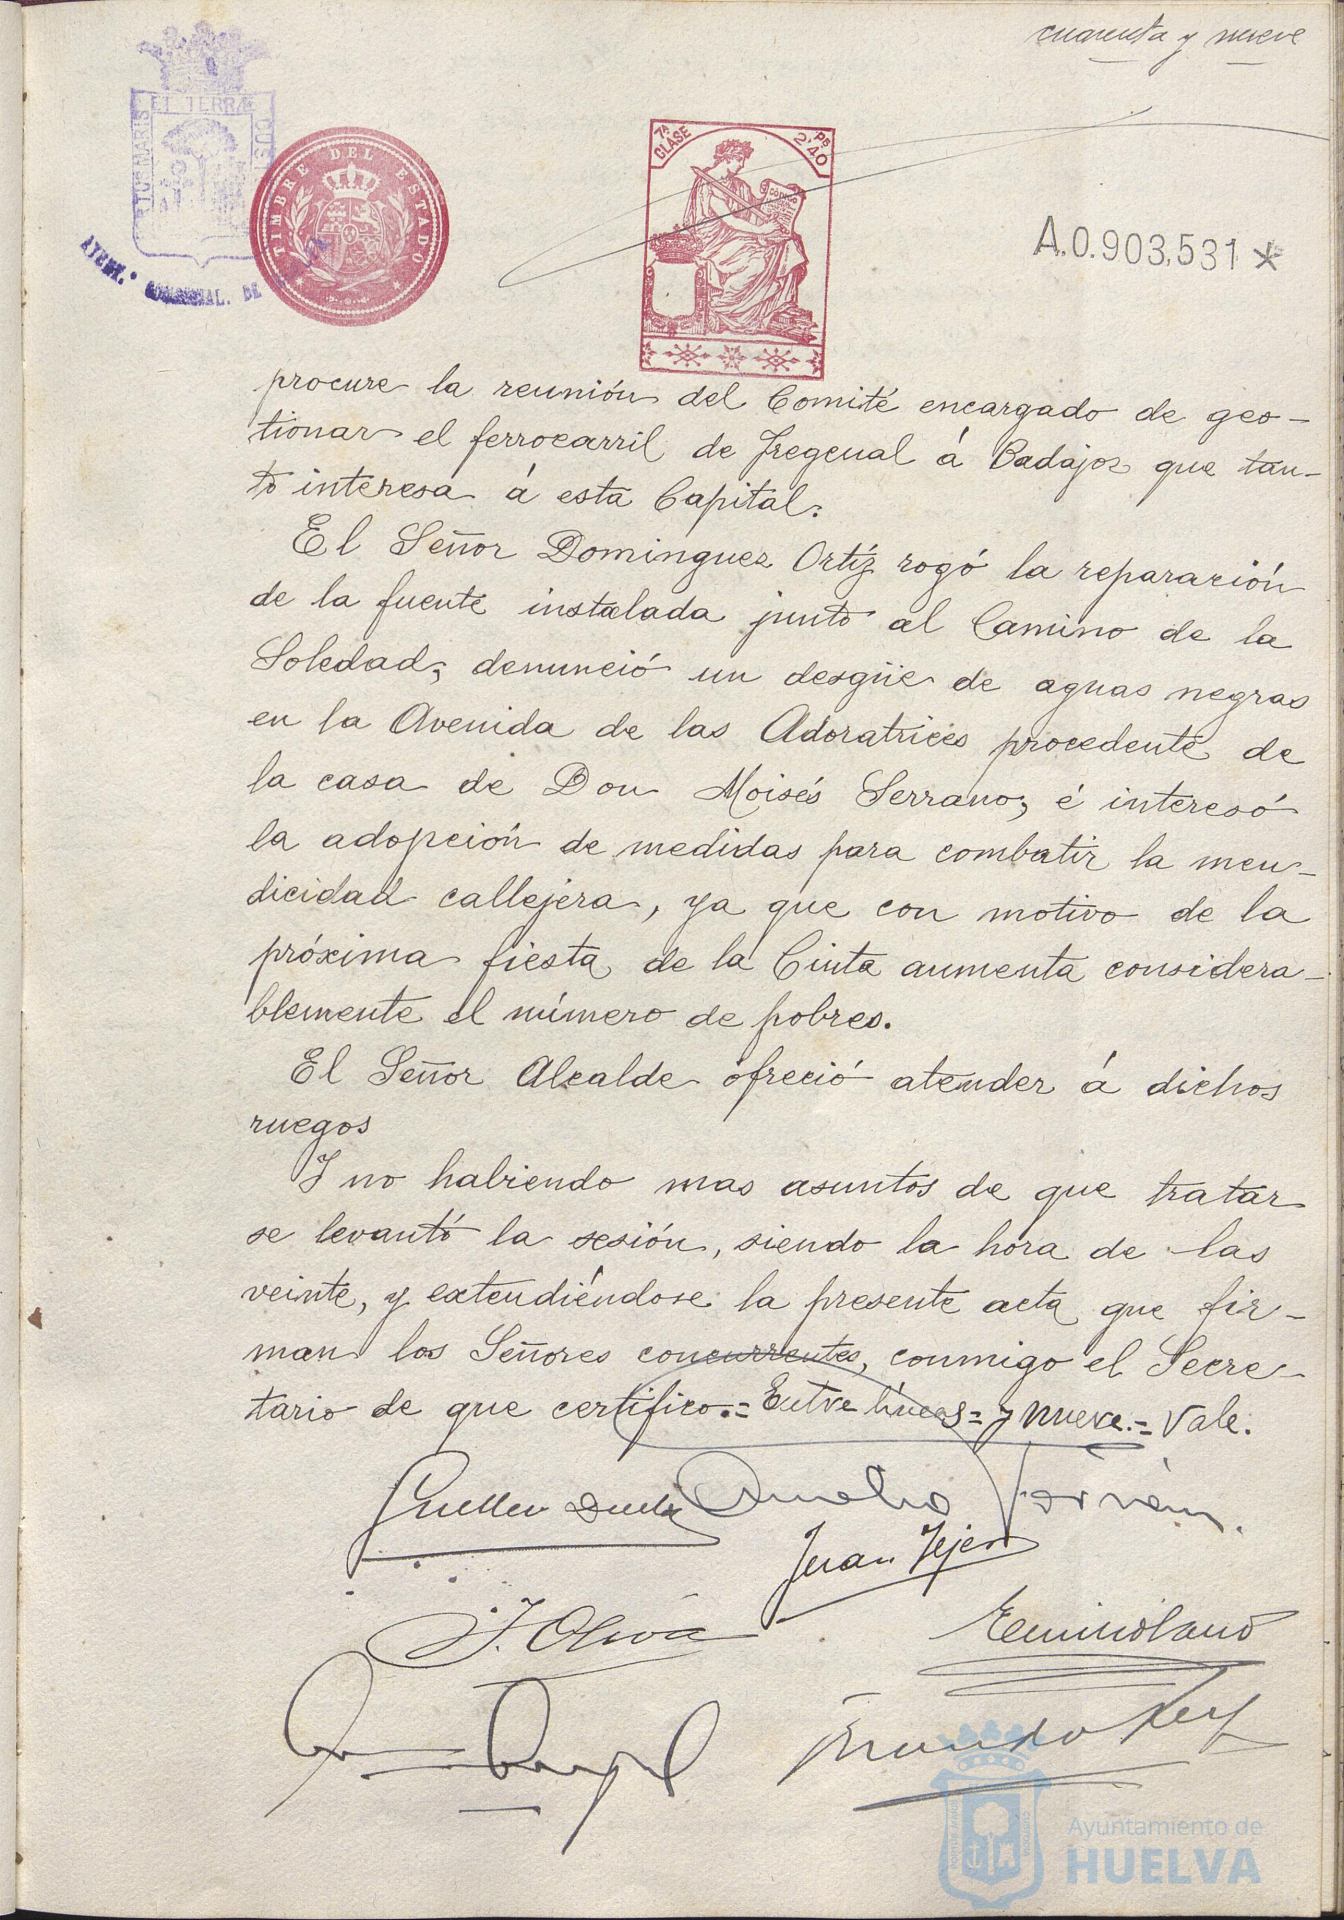 cuarenta y nueve
PORTUS MARIS ET TERRAE CUSTODIA
AYUNT.º CONSTITUCIONAL. DE HUELVA
TIMBRE DEL ESTADO
7ª CLASE
Ps 2'40
CODIGO
A.0.903,531 *
procure la reunión del Comité encargado de ges-
tionar el ferrocarril de Fregenal á Badajoz que tan-
to interesa á esta Capital.
El Señor Dominguez Ortíz rogó la reparación
de la fuente instalada junto al Camino de la
Soledad; denunció un desgüe de aguas negras
en la Avenida de las Adoratrices procedente de
la casa de Don Moisés Serrano; é interesó
la adopción de medidas para combatir la men-
dicidad callejera, ya que con motivo de la
próxima fiesta de la Cinta aumenta considera-
blemente el número de pobres.
El Señor Alcalde ofreció atender á dichos
ruegos
Y no habiendo mas asuntos de que tratar
se levantó la sesión, siendo la hora de las
veinte, y extendiéndose la presente acta que fir-
man los Señores concurrentes, conmigo el Secre-
tario de que certifico.= Entre líneas= y nueve.= Vale.
Juan Tejero
J. Oliva
Ayuntamiento de
HUELVA